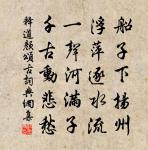 船子下揚州
浮萍逐水流
一聲河滿子
千古動悲愁
釋道顏頌古詞典網集